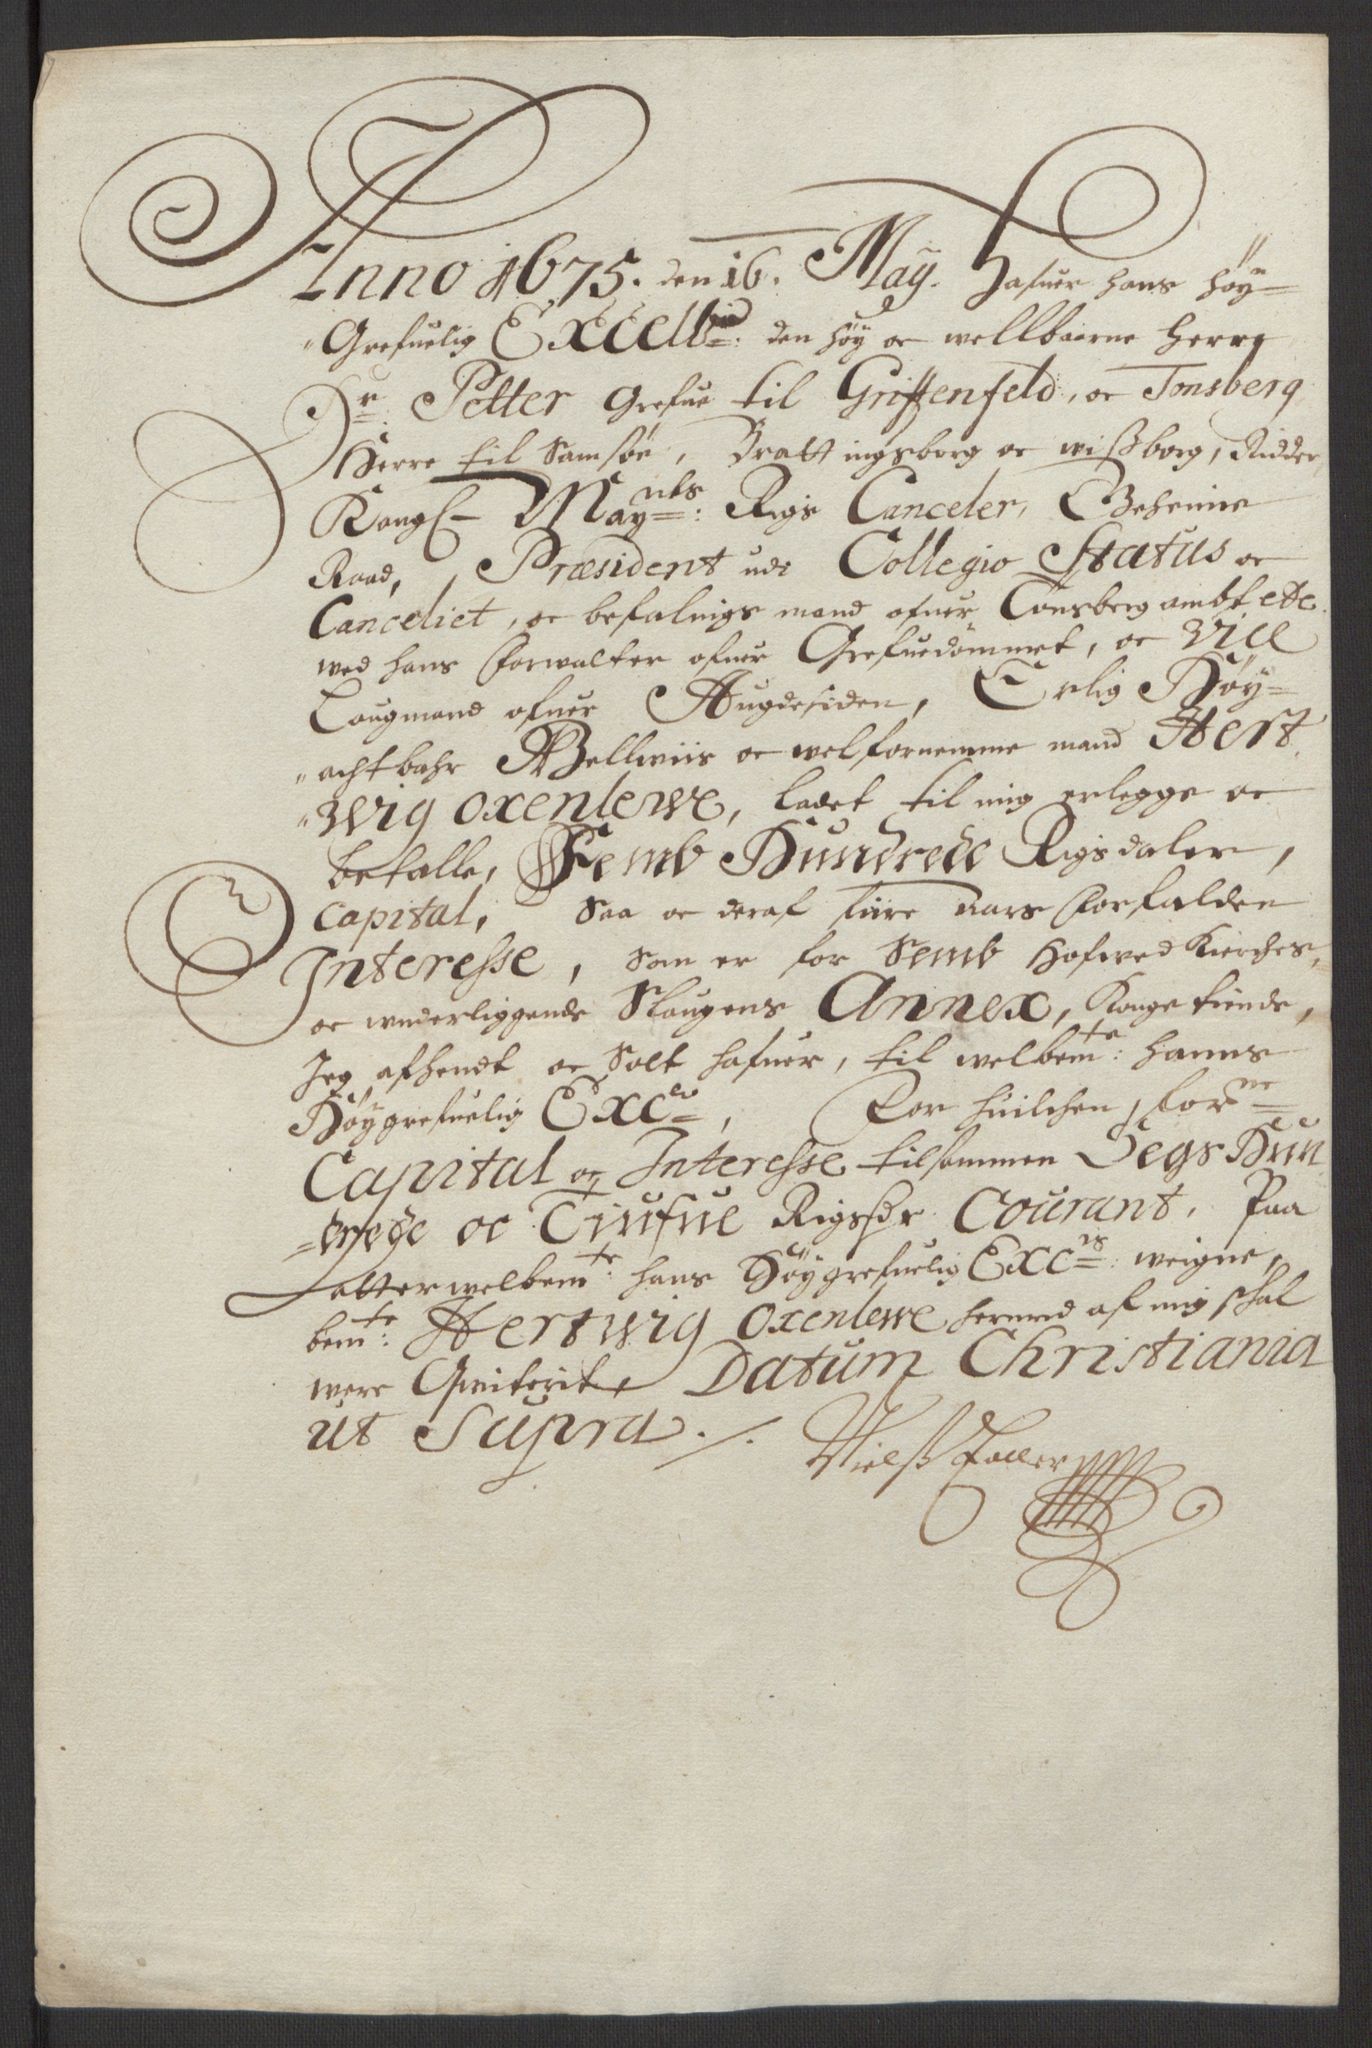 Anno 1675. den 16. May. Hafuer hans høy=
Grefuelig Excell: den høy oc wellbaarne herre
Hr Petter Grefue til Griffenfeld, oc Tonsberg
Herre til Samsøe, Bratt ingsborg oc wißborg, Ridder
Kongl Mayts: Rigs Canceler, Geheime
Raad, Præsident udi Collegio Status oc
Canceliet, oc befalnigs mand ofuer Tonsberg ambt etc
wed hans forwalter ofuer Grefuedømmet, oc Vice
Laugmand ofuer Augdesiden, Erlig Høy=
achtbahr Wellwiis oc welfornemme mand Hert
wig oxenlewe, ladet til mig erlegge oc
betalle, Femb Hundrede Rigsdaler,
Capital, Saa oc deraf fiire aars forfalden
Interesse, som er for Semb Hofwed Kierches,
oc wnderliggende Slaugens Annex, Konge tiende,
Jeg afhendt oc Solt hafuer, til welbemte: hanns
Høygrefuelig Exc, For huilchen forne
Capital og Interesse tilsammen Segs Hun
=drede oc Tiufue Rigsdr Courant, Paa
atter welbemte: hans Høygrefuelig Excs: weigne,
bemte: Hertwig oxenlewe hermed af mig schal
were Qviterit, Datum Christiania
ut Supra ./.
Nielß Taller